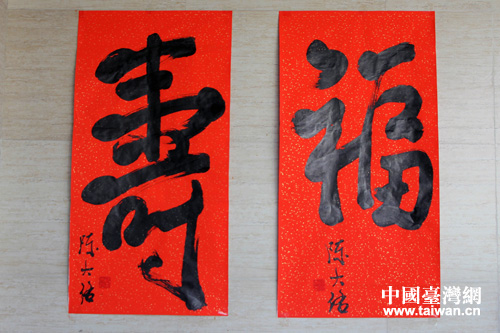 壽
陈大佑
福
陈大佑
中國臺灣網
www.taiwan.cn